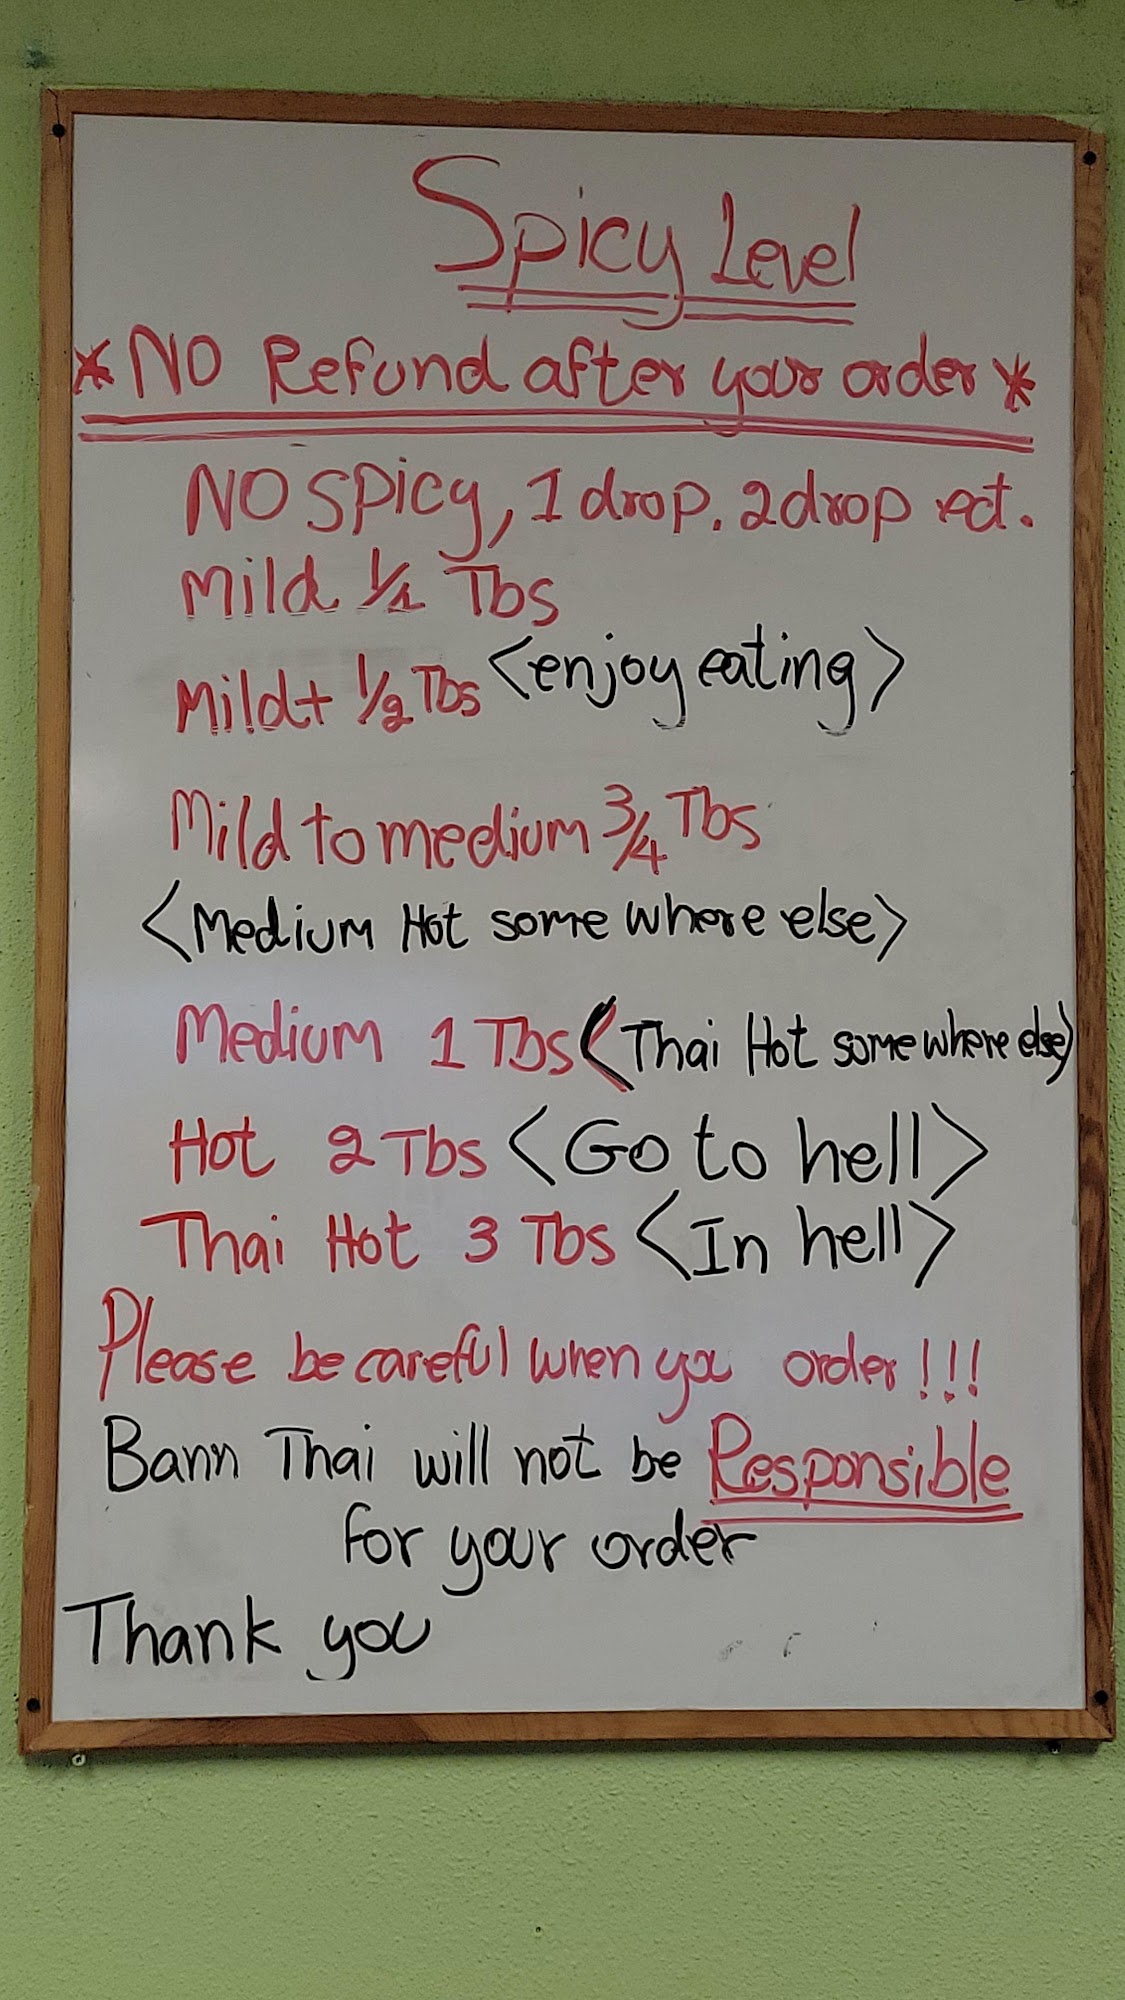 Spicy Level
*NO Refund after your order*
NO spicy, 1 drop. 2 drop ect.
Mild 1/1 Tbs
Mild+ 1/2 Tbs <enjoy eating>
Mild to medium 3/4 Tbs
<Medium Hot some where else>
Medium 1 Tbs (Thai Hot some where else)
Hot 2 Tbs <Go to hell>
Thai Hot 3 Tbs <In hell>
Please be careful when you order!!!
Bann Thai will not be Responsible
for your order
Thank you